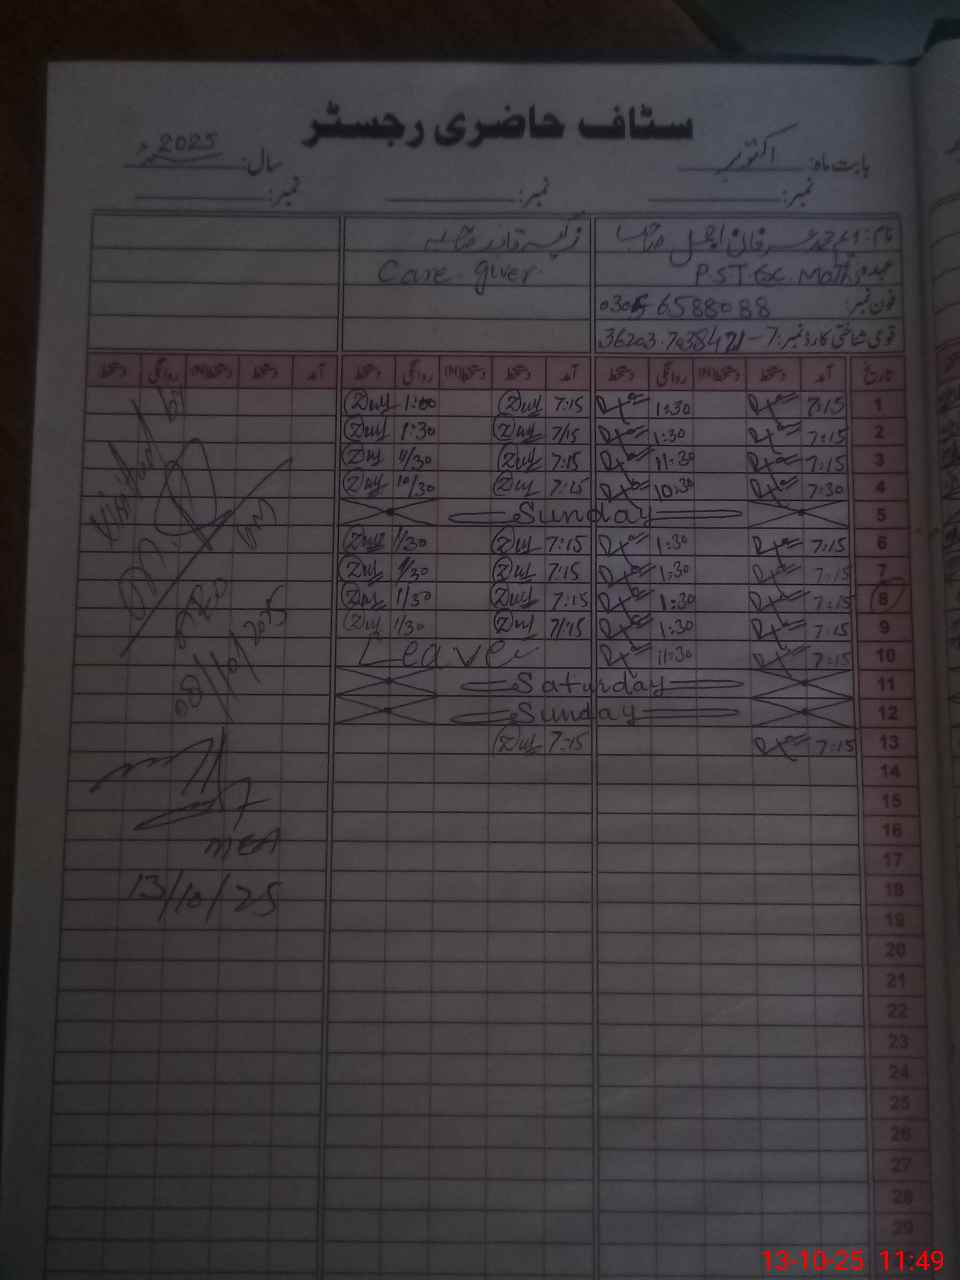 سٹاف حاضری رجسٹر
بابت ماہ: اکتوبر سال: 2025ء
نمبر: نمبر: نمبر:
نام:
Care giver عہدہ P.S.T Sc. Maths
فون نمبر: 6588088
قومی شناختی کارڈ نمبر:
تاریخ آمد دستخط دستخط(N) روانگی دستخط آمد دستخط دستخط(N) روانگی دستخط آمد دستخط دستخط(N) روانگی دستخط
1:00 7:15 1:30 7:15 1
1:30 7/15 1:30 7:15 2
11/30 7:15 11:30 7:15 3
10/30 7:15 10:30 7:30 4
Sunday 5
1/30 7:15 1:30 7:15 6
1/30 7:15 1:30 7:15 7
1/30 7:15 1:30 7:15 8
1/30 7/15 1:30 7:15 9
Leave 11:30 7:15 10
Saturday 11
Sunday 12
7:15 7:15 13
14
15
16
17
18
19
20
21
22
23
24
25
26
27
28
29
Visited by
08/10/2025
MEA
13/10/25
13-10-25 11:49